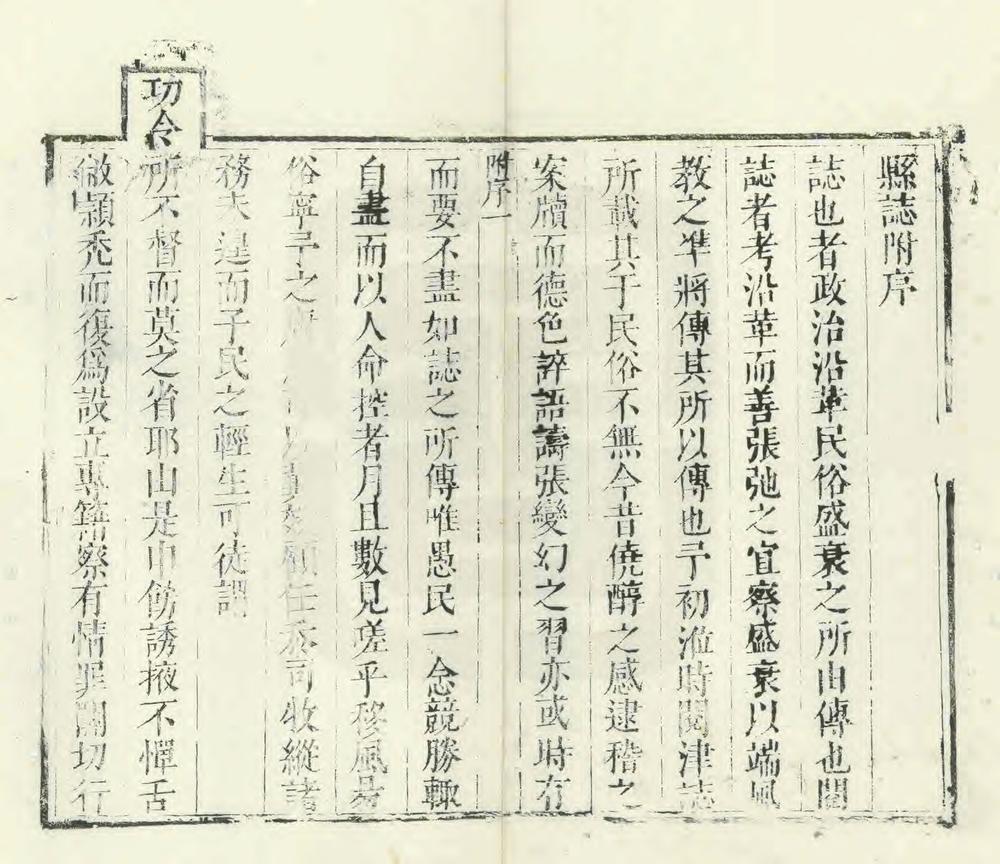 縣誌附序
誌也者政治沿革民俗盛衰之所由傳也閱
誌者考沿革而善張弛之宜察盛衰以端風
教之準將傳其所以傳也予初涖時閱津誌
所載其于民俗不無今昔僥醇之感逮稽之
案牘而德色誶語譸張變幻之習亦或時有
附序一
而要不盡如誌之所傳唯愚民一念競勝輙
自盡而以人命控者月且數見嗟乎移風易
俗寧予之 顧任忝司牧縱諸
務未遑而子民之輕生可徒謂
功令
所不督而莫之省耶由是申飭誘掖不憚舌
敝頴禿而復爲設立專簿察有情罪關切行